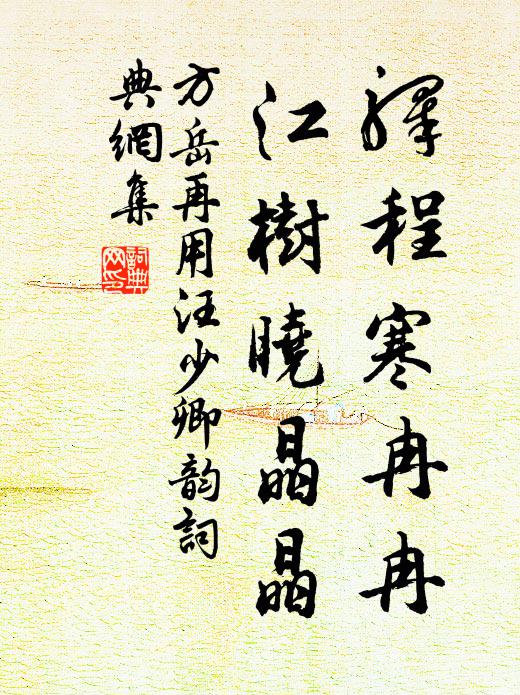 驛程寒冉冉
江樹曉晶晶
方岳再用汪少卿韵詞
典網集
詞典
网印